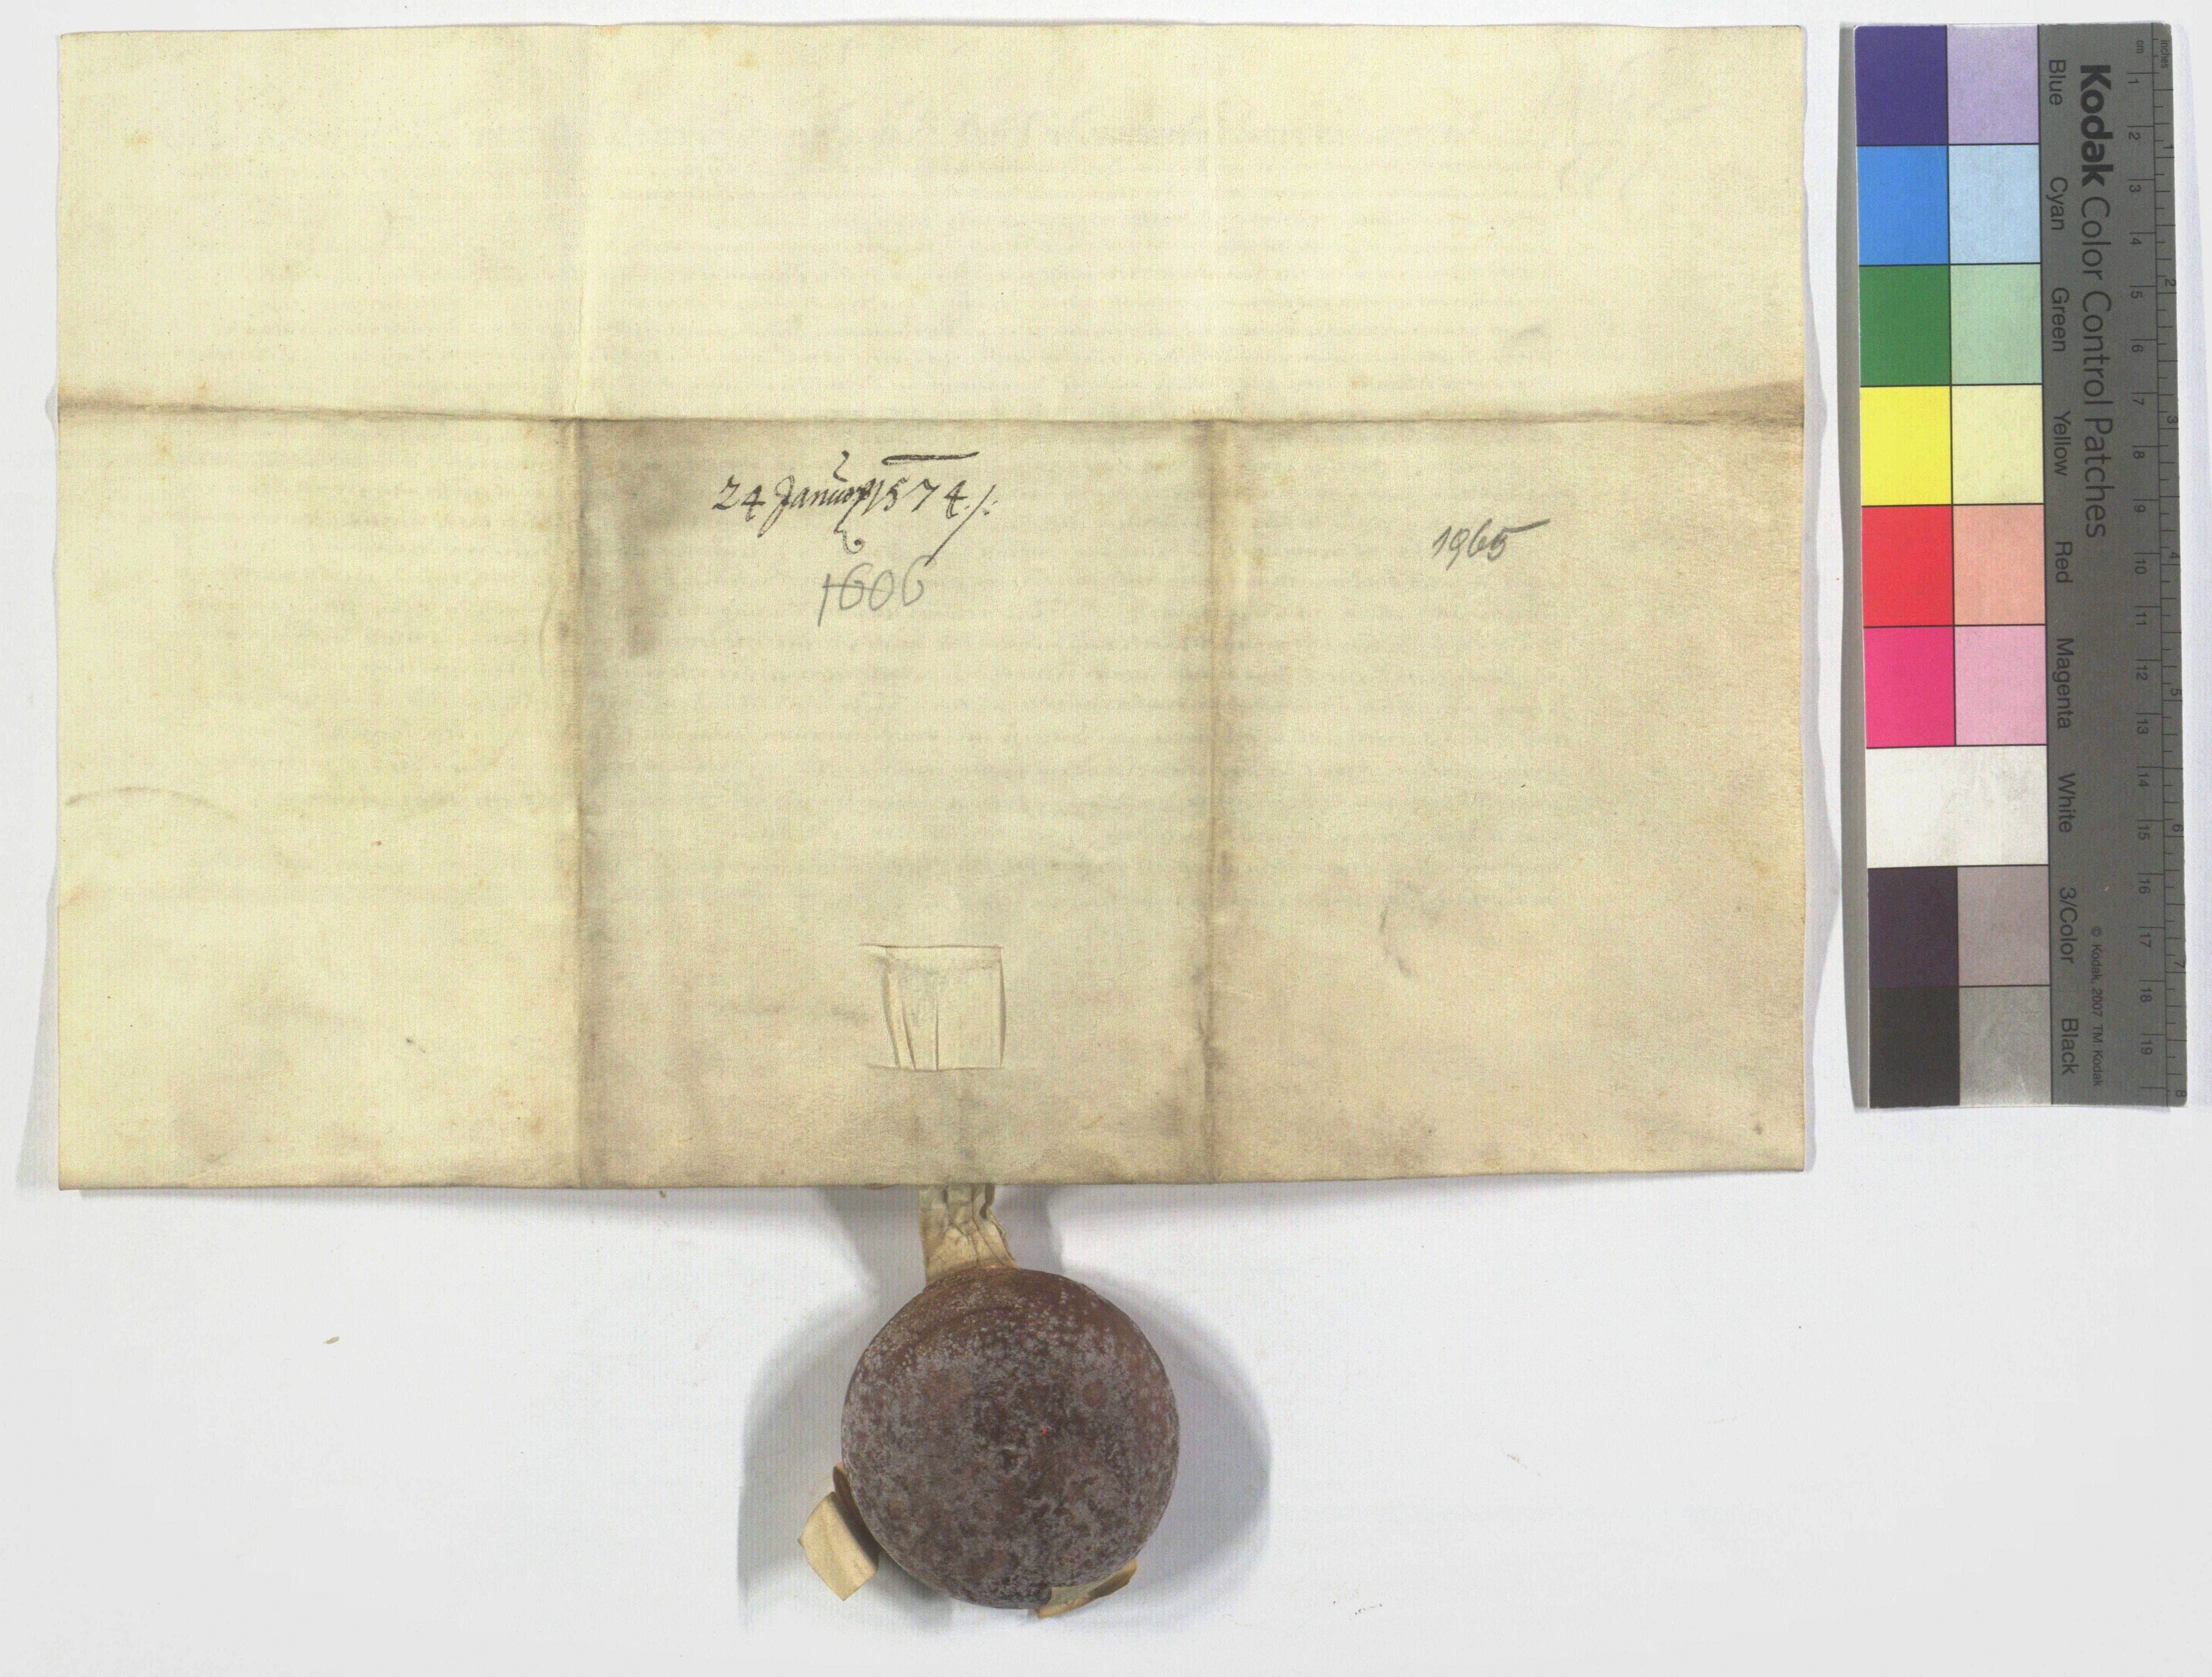 24 Januarij 1574 ./.
1606
1965
Kodak Color Control Patches
Blue Cyan Green Yellow Red Magenta White 3/Color Black
© Kodak, 2007 TM: Kodak
cm 1 2 3 4 5 6 7 8 9 10 11 12 13 14 15 16 17 18 19
inches 1 2 3 4 5 6 7 8